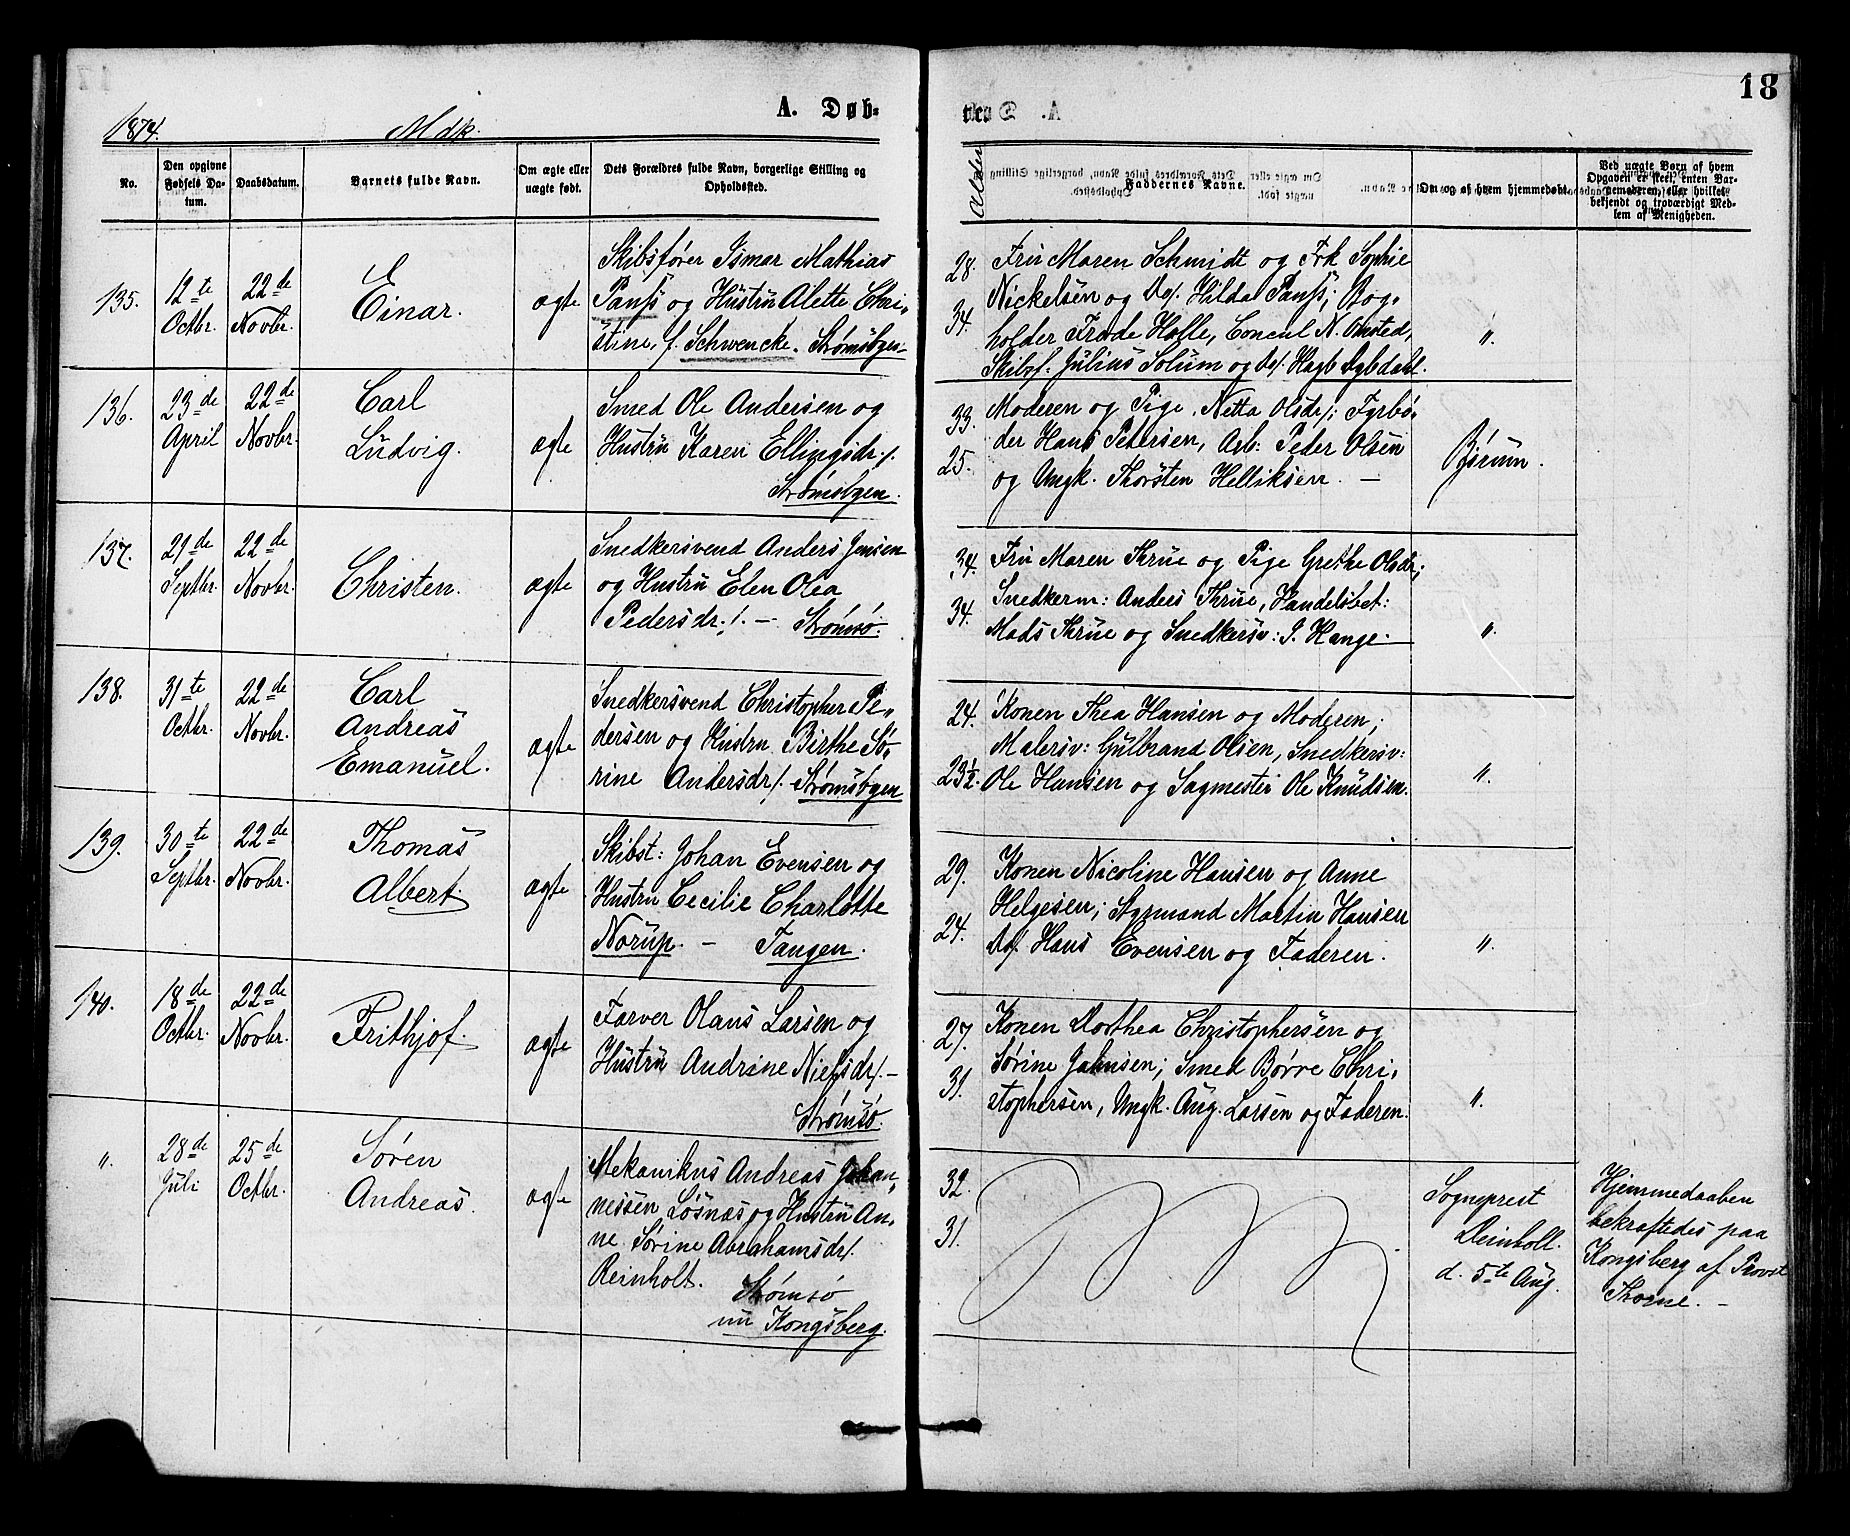 18
1874. Mdk. A. Døb-
No.
Den opgivne Fødsels Da-tum.
Daabsdatum.
Barnets fulde Navn.
Om ægte eller uægte født.
Dets Forældres fulde Navn, borgerlige Stilling og Opholdssted.
Alder
Faddernes Navne.
Om og af hvem hjemmedøbt.
Ved uægte Børn af hvem
Opgaven er skeet, enten Bar-
nemoderen, eller hvilket
bekjendt og troværdigt Med-
lem af Menigheden.
135.
12te
Octbr.
22de
Novbr.
Einar.
ægte
Skibsfører Ismar Mathias
Panss og Hustru Alette Chri-
stine, f. Schwencke. Strømsbgen.
28.
34.
Fru Maren Schmidt og Frk Sophie
Nickelsen og Do/. Hilda Panss; Bog-
holder Frode Holle, Consul N. Omsted,
Skibsf. Julius Solum og Do/. Hagb Agbdahl.
"
136.
23de
April
22de
Novbr
Carl
Ludvig.
ægte
Smed Ole Andersen og
Hustru Karen Ellingsdr./.
Strømsbgen.
33.
25.
Moderen og Pige Netta Olsdr/; Fyrbø-
der Hans Petersen, Arb: Peder Olsen
og Ungk. Thorsten Helliksen. —
137.
21de
Septbr.
22de
Novbr.
Christen.
ægte
Snedkersvend Anders Jensen
og Hustru Elen Olea
Pedersdr./. — Strømsø.
34.
34.
Fru Maren Thrue og Pige Grethe Olsdr;
Snedkerm: Anders Thrue, Handelsbet:
Mads Thrue og Snedkersv: P. Hange.
"
138.
31te
Octbr.
22de
Novbr.
Carl
Andreas
Emanuel.
ægte
Snedkersvend Christopher Pe-
dersen og Hustru Birthe Sø-
rine Andersdr/. Strømsbgen
24.
23½.
Konen Thea Hansen og Moderen;
Malersv: Gulbrand Olsen, Snedkersv:
Ole Hansen og Sagmester Ole Knudsen.
"
139.
30te
Septbr.
22de
Novbr.
Thomas
Albert.
ægte
Skibst: Johan Evensen og
Hustru Cecilie Charlotte
Norup. — Tangen.
29.
24.
Konen Nicoline Hansen og Anne
Helgesen; Styrmand Martin Hansen
Do/. Hans Evensen og Faderen.
"
140.
18de
Octbr.
22de
Novbr.
Frithjof.
ægte
Farver Olaus Larsen og
Hustru Andrine Nielsdr/. —
Strømsø.
27.
31.
Konen Dorthea Christophersen og
Sørine Johnsen; Smed Børre Chri-
stophersen, Ungk. Aug. Larsen og Faderen.
"
"
28de
Juli
25de
Octbr.
Søren
Andreas.
ægte
Mekanikus Andreas Johan-
nessen Løsnæs og Hustru An-
ne Sørine Abrahamsdr/.
Reinholt.
Strømsø
nu Kongsberg.
32.
31.
Sogneprest
d. 5te Aug.
Hjemmedaaben
bekræftedes paa
Kongsberg af Provst
Thorne. —